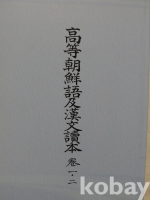 高等朝鮮語及漢文讀本 卷一·二
kobay